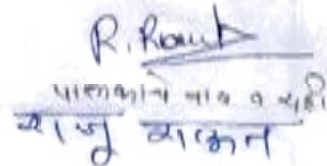 R. Raut
पालकाचे नाव व सही
राजु राऊत